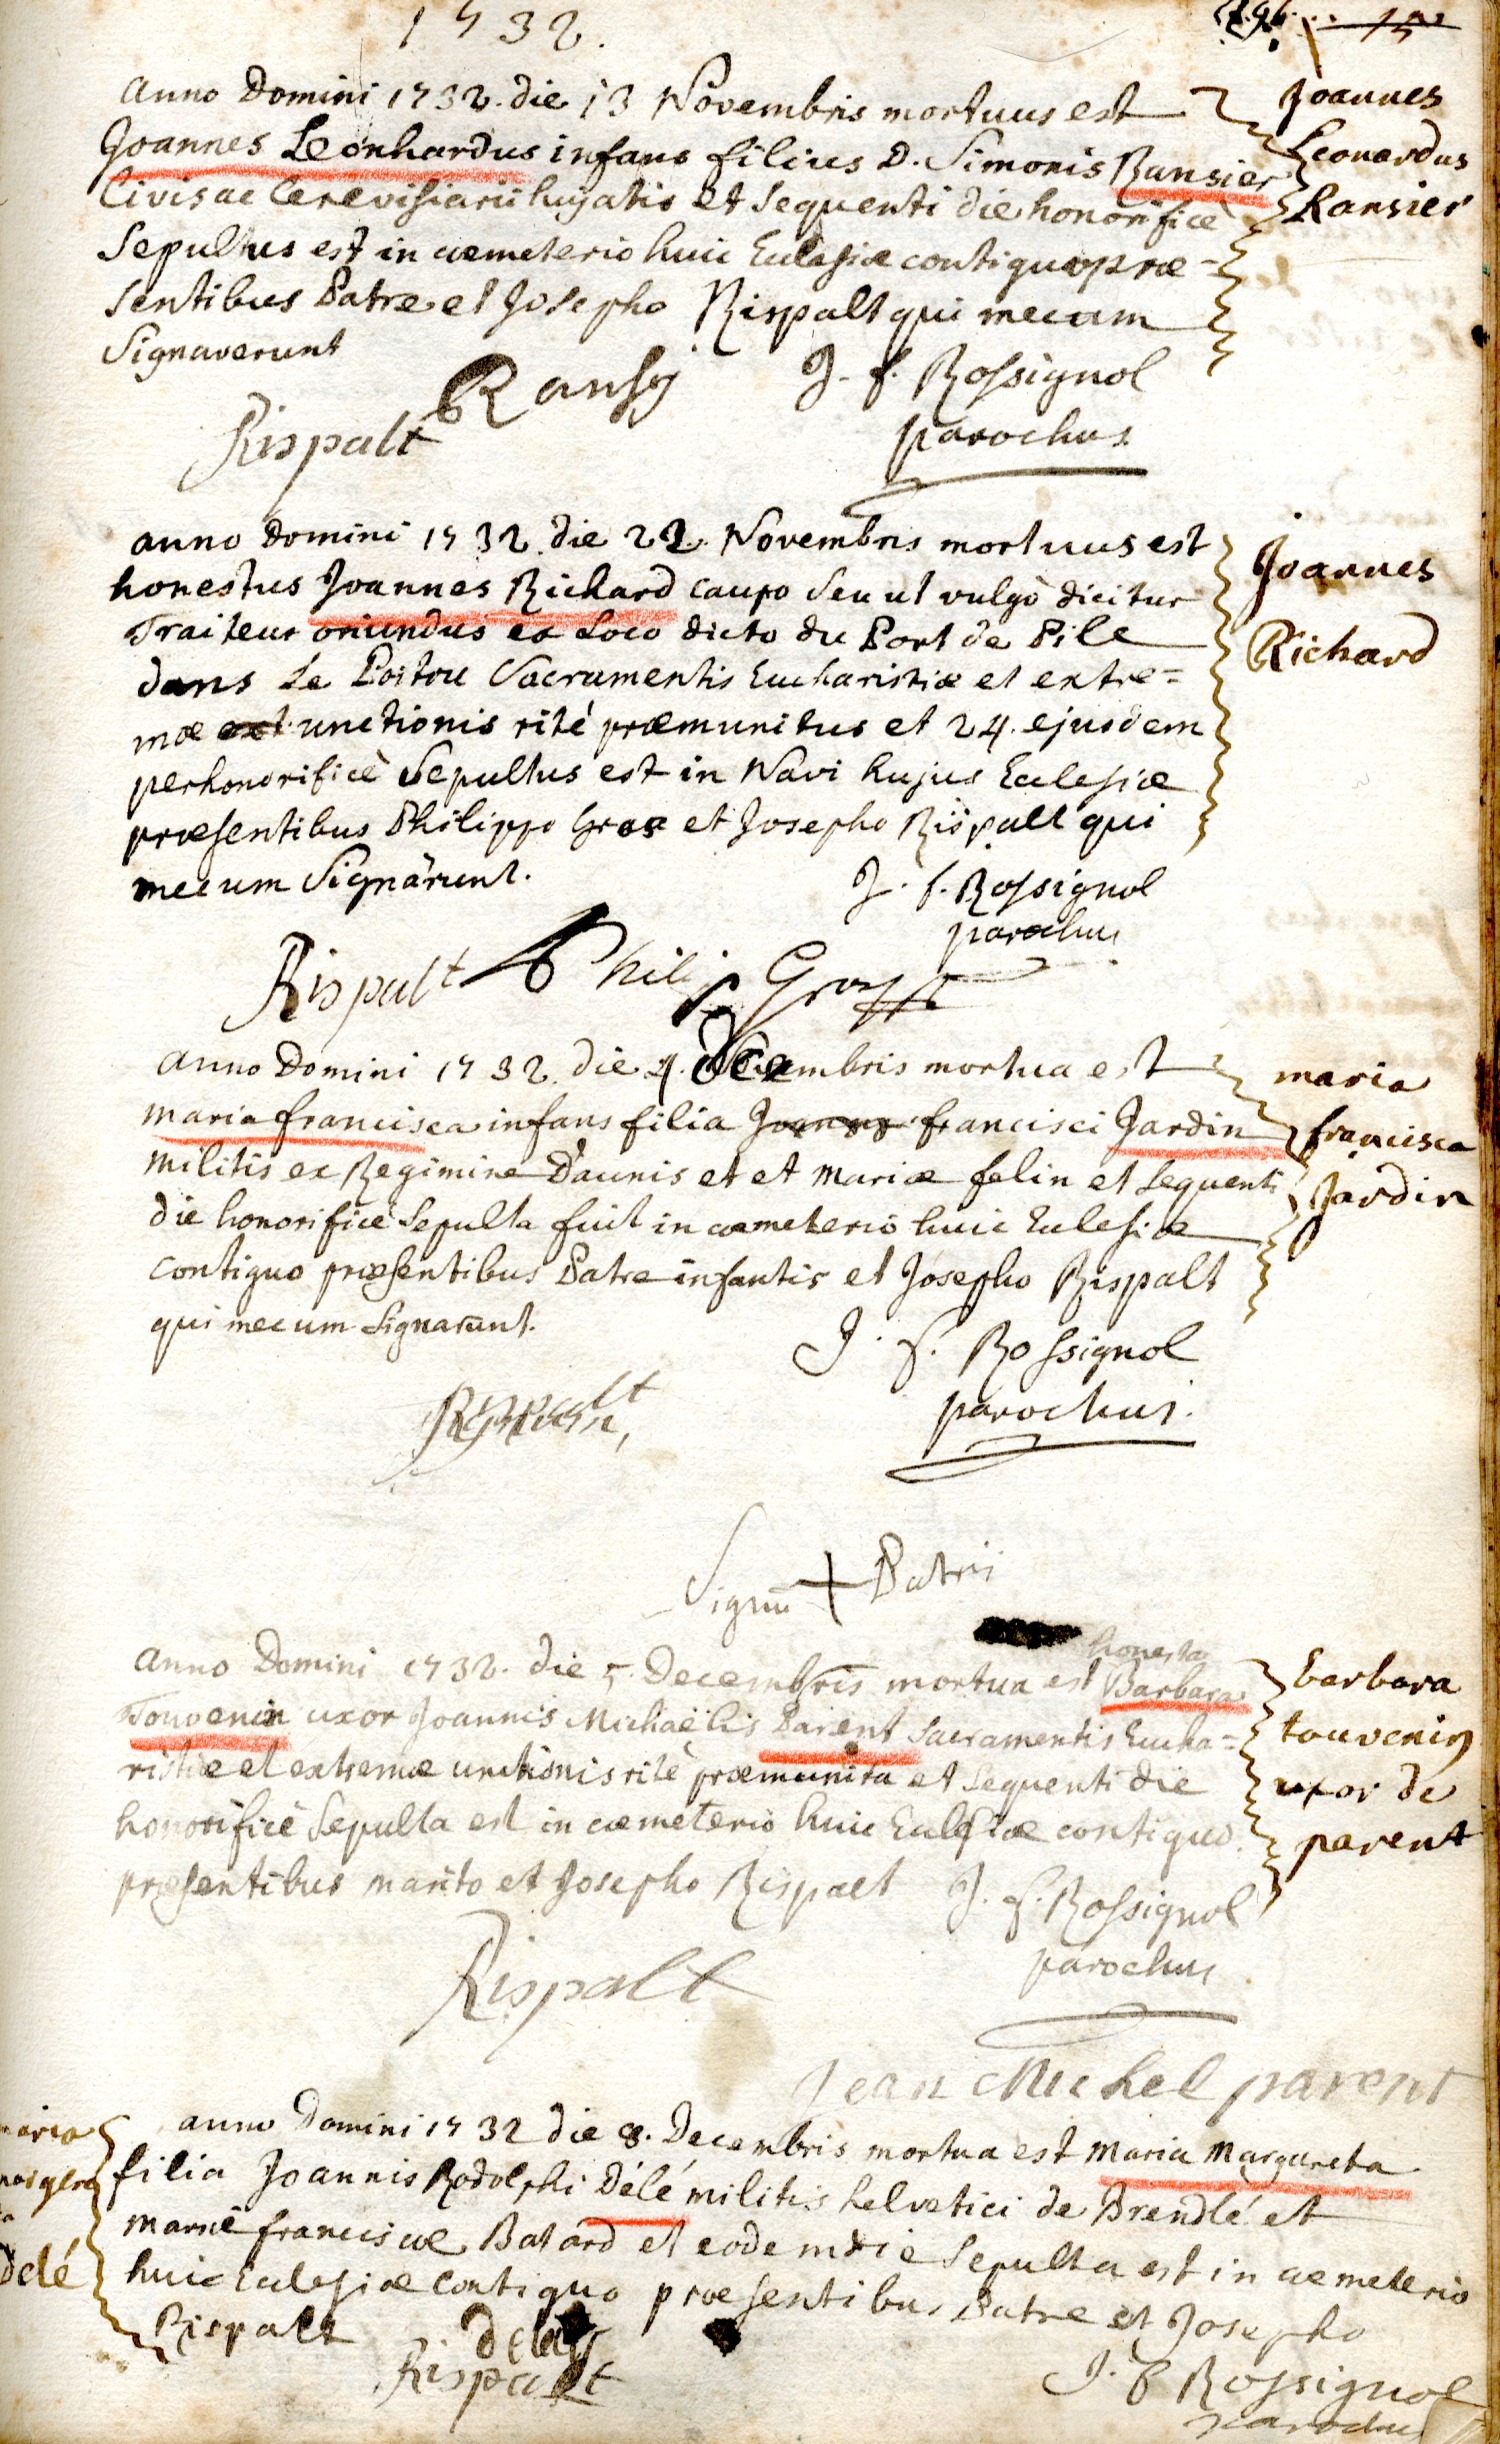 1732.
Anno Domini 1732. die 13 Novembris mortuus est
Joannes Leonhardus infans filius D. Simonis Ransier
Civis ac Cerevisiarii hujatis et sequenti die honorificè
Sepultus est in cœmeterio huic Eclesiæ contiguo præ-
sentibus Patre et Josepho Rispalt qui mecum
Signaverunt
Joannes
Leonardus
Ransier
J. f. Rossignol
parochus
Rispalt
anno Domini 1732. die 22. Novembris mortuus est
honestus Joannes Richard caupo seu ut vulgò dicitur
Traiteur oriundus ex Loco dicto du Port de Pile
dans Le Poitou Sacramentis Eucharistiæ et extre=
mæ ext unctionis ritè præmunitus et 24. ejusdem
perhonorificè Sepultus est in Navi hujus Eclesiæ
præsentibus Philippo Gros et Josepho Rispalt qui
mecum Signârunt.
Joannes
Richard
J. f. Rossignol
parochus
Rispalt Philip Gross
anno Domini 1732. die 4. Decembris mortua est
maria francisca infans filia Joannis francisci Jardin
militis ex Regimine D'aunis et et Mariæ felin et sequenti
die honorificè Sepulta fuit in cœmeterio huic Eclesiæ
contiguo præsentibus Patre infantis et Josepho Rispalt
qui mecum Signarunt.
maria
francisca
Jardin
J. f. Rossignol
parochus.
Rispalt
Signū + Patris
honesta
anno Domini 1732. die 5. Decembris mortua est Barbara
Touvenin uxor Joannis Michaëlis Parent Sacramentis Eucha=
ristiæ et extremæ unctionis ritè præmunita et sequenti die
honorificè Sepulta est in cœmeterio huic Eclesiæ contiguo
præsentibus marito et Josepho Rispalt
barbara
touvenin
uxor de
parent
J. f. Rossignol
parochus
Rispalt
Jean Michel parent
anno Domini 1732 die 8. Decembris mortua est Maria Margareta
filia Joannis Rodolphi Délé militis helvetici de Brendlé et
mariæ franciscæ Batard et eodem die Sepulta est in cœmeterio
huic Eclesiæ contiguo præsentibus Patre et Josepho
Rispalt
maria
delé
Rispalt
J. f Rossignol
parochus